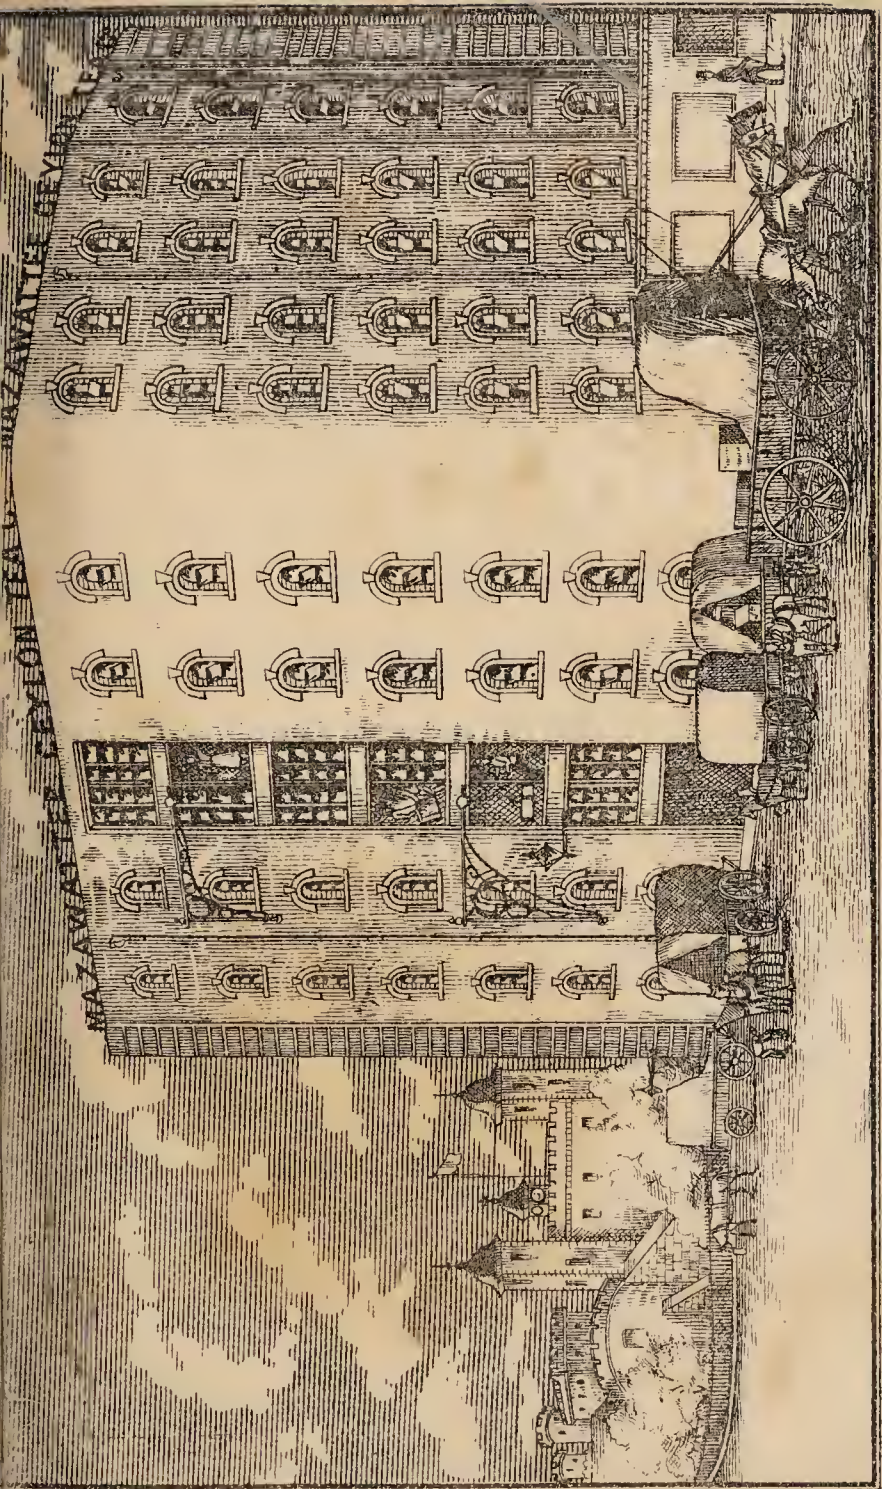 MAZAWATTEE CEYLON TEA
MAZAWATTEE CEYLON